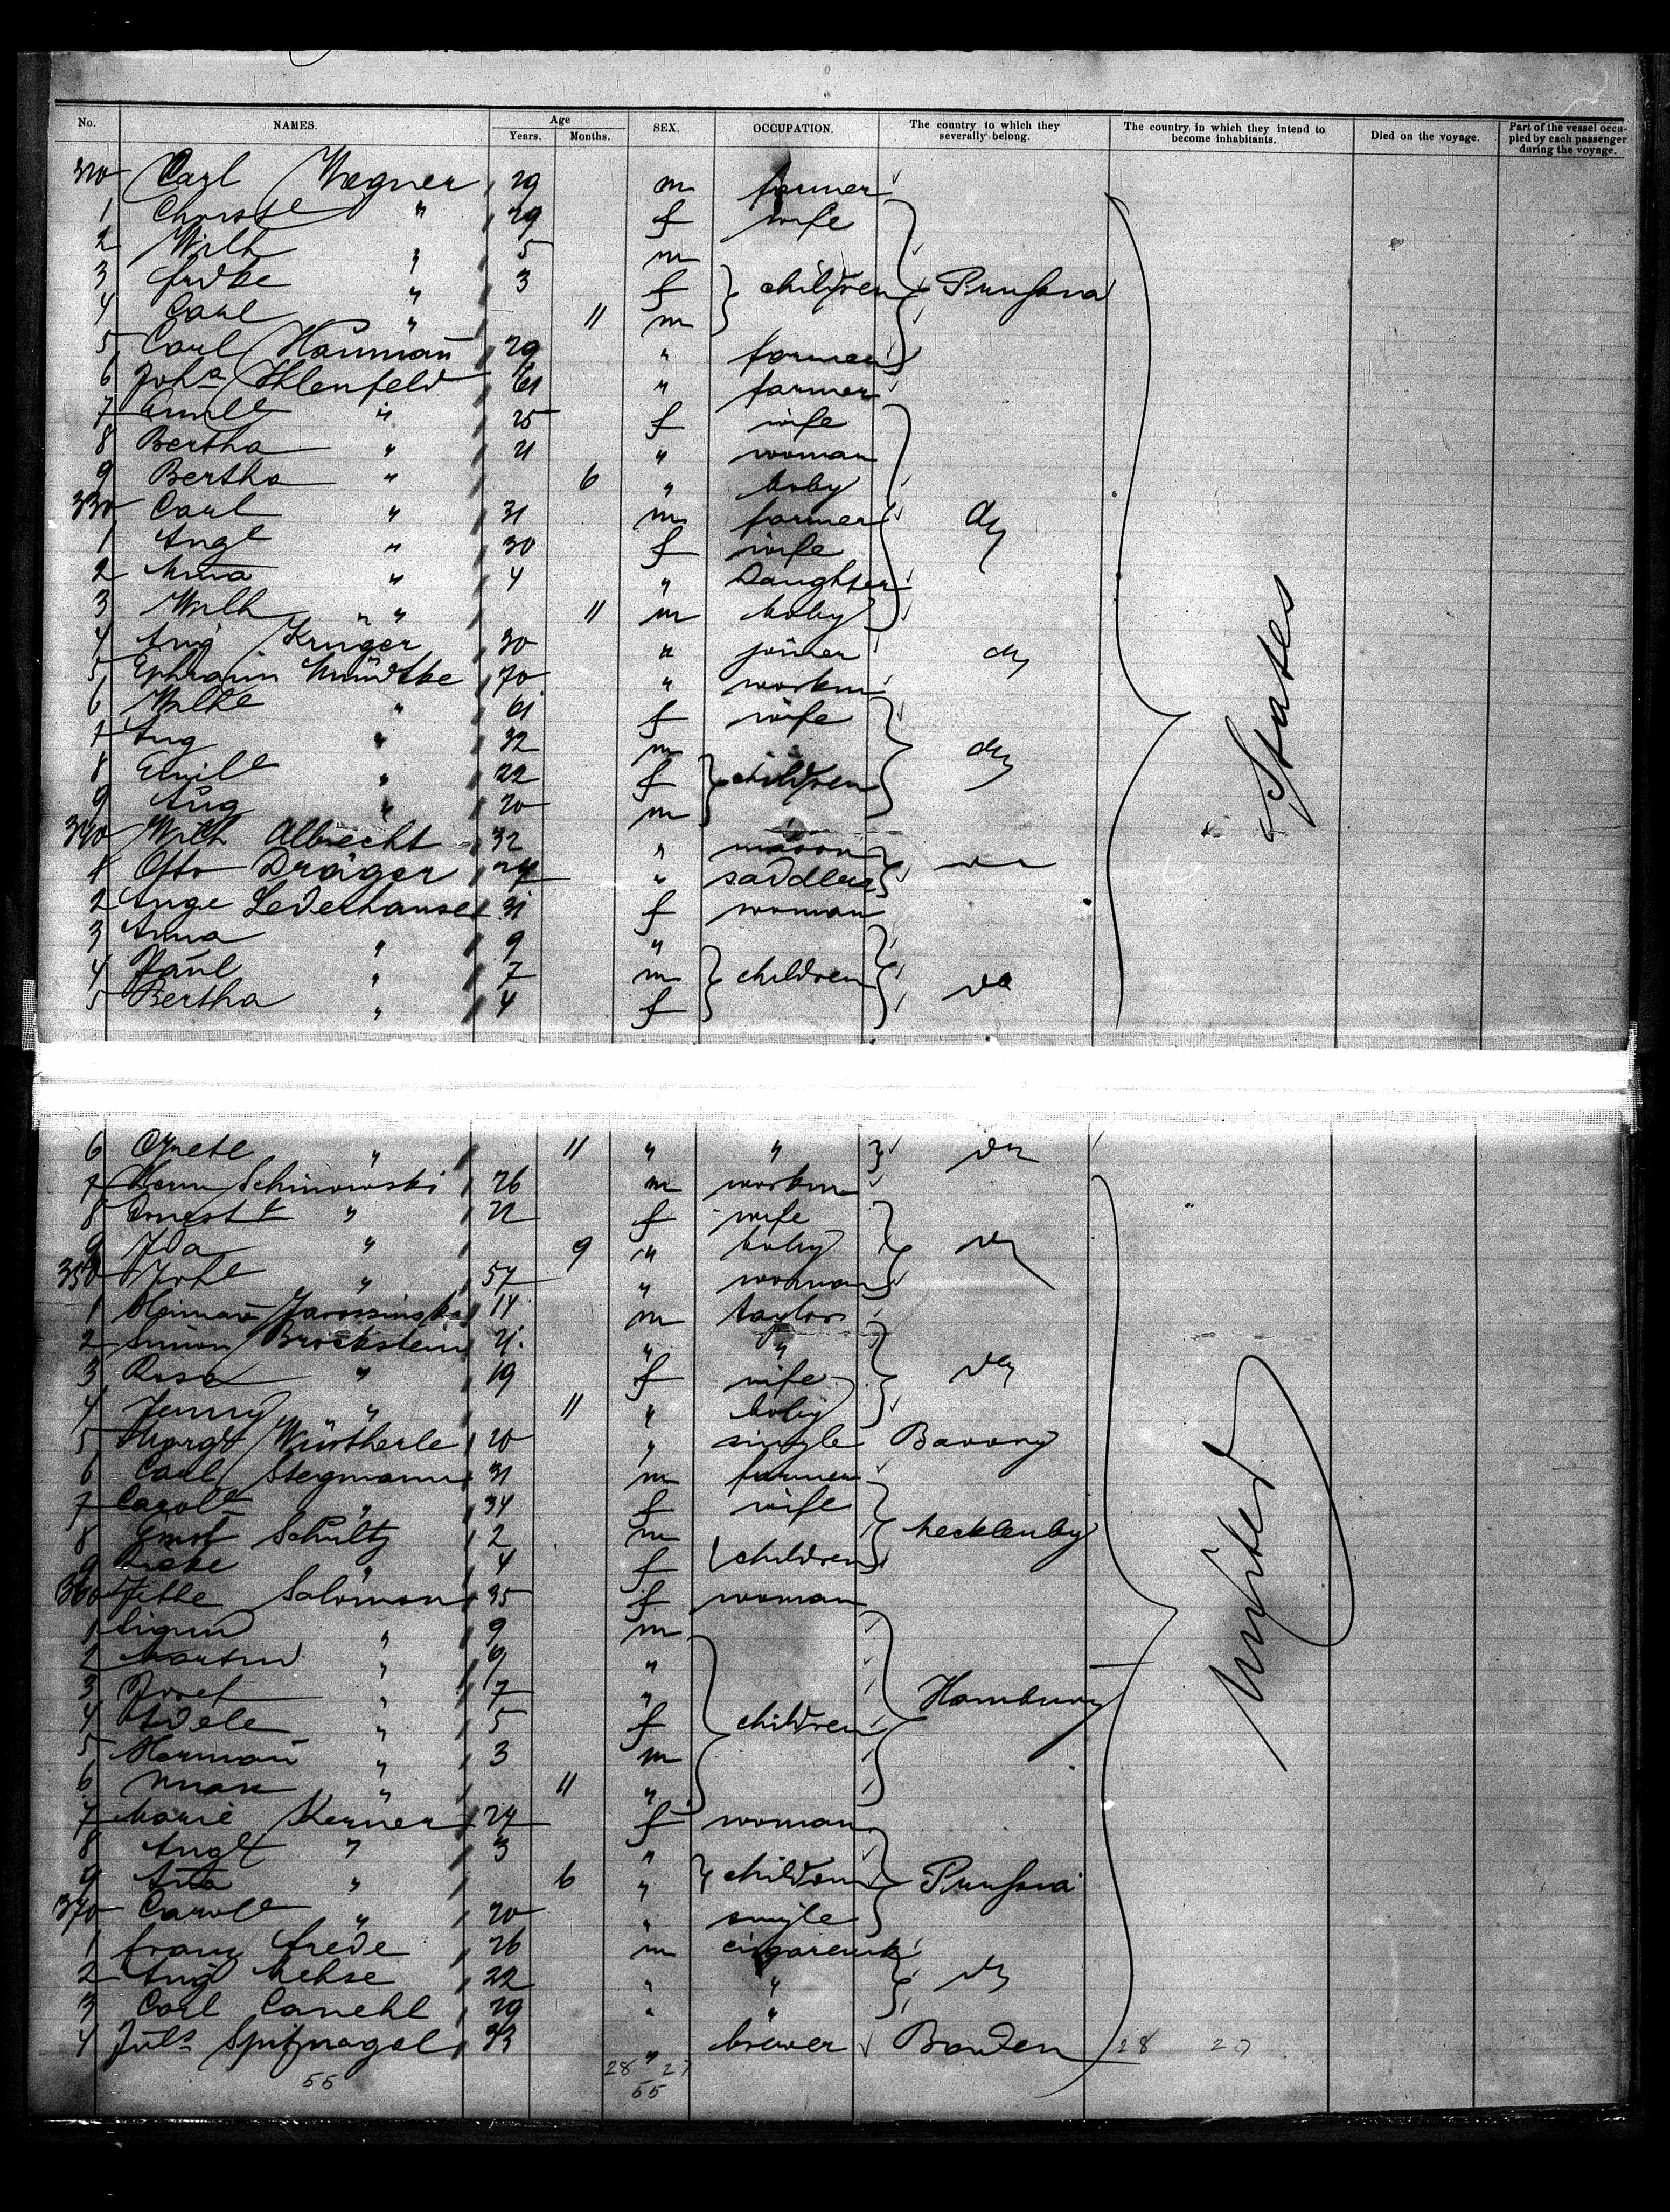 No. NAMES. Age Years. Months. SEX. OCCUPATION. The country to which they severally belong. The country in which they intend to become inhabitants. Died on the voyage. Part of the vessel occupied by each passenger during the voyage.
320 Carl Wegner 29 m farmer
1 Christe " 29 f wife
2 Wilh " 5 m
3 " 3 f children Prussia
4 Carl " 11 m
5 Carl Haumañ 29 " farmer
6 Joha Ihlenfeld 61 " farmer
7 " 25 f wife
8 Bertha " 21 " woman
9 Bertha " 6 " baby
330 Carl " 31 m farmer do
1 Auge " 30 f wife
2 " 4 " Daughter
3 Wilh " " 11 m baby
4 Aug Kruger 30 " joiner do
5 Ephraim 70 " workm
6 Wilhe " 61 f wife
7 Aug " 32 m do
8 Emile " 22 f children
9 Aug " 20 m
340 Wilh Albrecht 32 " mason do
1 Otto Dräger 24 " saddler
2 Auge Lederhause 31 f woman
3 Anna " 9 "
4 Paul " 7 m children do
5 Bertha " 4 f
States
6 Grete " 11 " " do
7 Herm Schinowski 26 m workm
8 Erneste " 22 f wife
9 Ida " 9 " baby do
350 " 57 " woman
1 14 m taylor
2 Simon Brockstein 21 " "
3 Rosa " 19 f wife do
4 Jenny " 11 " baby
5 Margt 20 " single Bavary
6 Carl Stegmann 31 m farmer
7 Carole " 34 f wife
8 Ernst Schultz 2 m Mecklenbg
9 " 4 f children
360 Jette Salomon 35 f woman
1 " 9 m
2 Martin " 9 "
3 Josef " 7 " Hamburg
4 Adele " 5 f children
5 Hermañ " 3 m
6 Max " 11 "
7 Marie Kerner 24 f woman
8 Augt " 3 "
9 " 6 " children Prussia
370 Carole " 20 " single
1 Franz Frede 26 m
2 Aug Mehse 22 " " do
3 Carl Canehl 29 " "
4 Juls Spitznagel 33 " brewer Baden 28 27
28 27
55 55
United